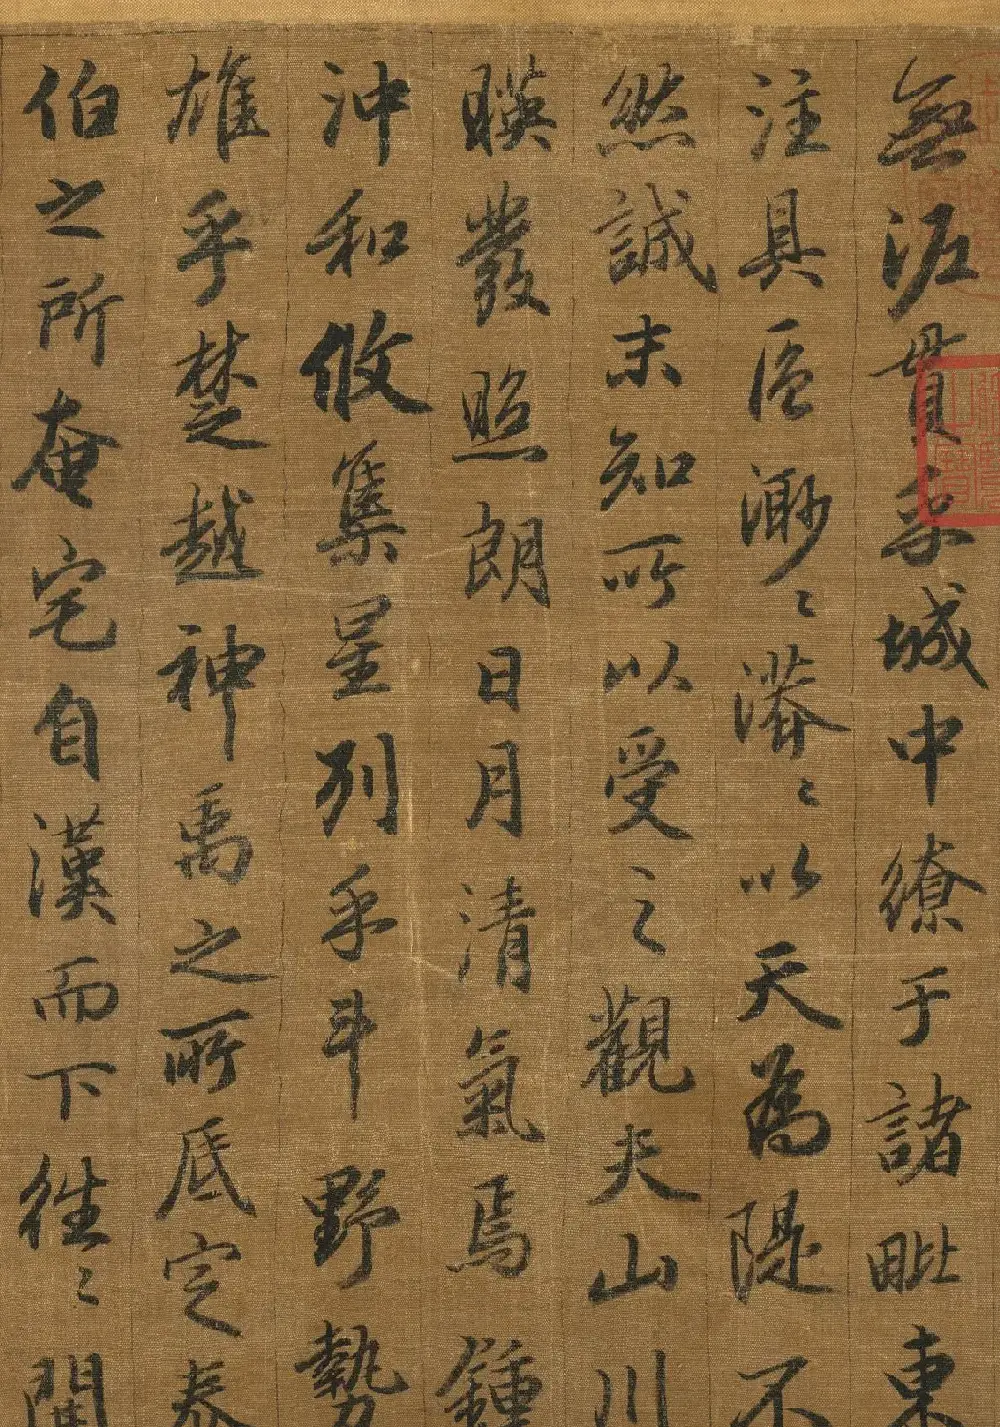 無涯貫乎城中繚于諸毗東
注具區渺〻漭〻以天為隄不
然誠未知所以受之觀夫山川
暎發照朗日月清氣焉鍾
沖和攸集星列乎斗野勢
雄乎楚越神禹之所底定泰
伯之所奄宅自漢而下往〻開